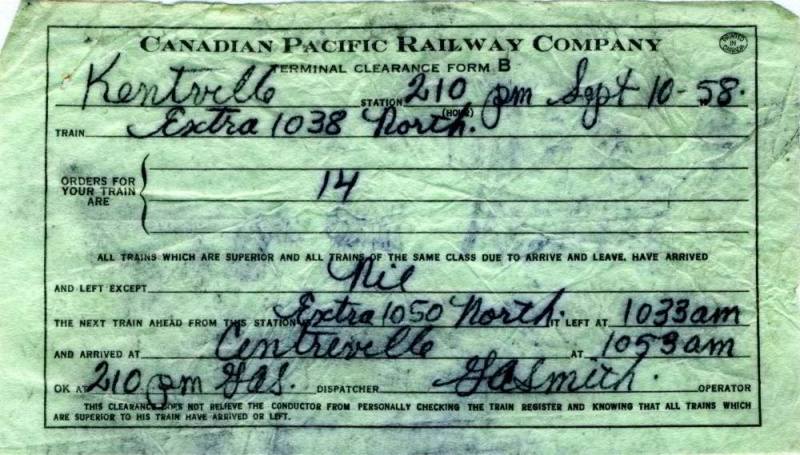 CANADIAN PACIFIC RAILWAY COMPANY
PRINTED IN CANADA
TERMINAL CLEARANCE FORM B
Kentville STATION 210 pm Sept 10-58.
(HOUR)
TRAIN Extra 1038 North.
ORDERS FOR YOUR TRAIN ARE 14
ALL TRAINS WHICH ARE SUPERIOR AND ALL TRAINS OF THE SAME CLASS DUE TO ARRIVE AND LEAVE, HAVE ARRIVED
AND LEFT EXCEPT Nil
THE NEXT TRAIN AHEAD FROM THIS STATION Extra 1050 North. IT LEFT AT 1033 am
AND ARRIVED AT Centreville AT 1053 am
OK AT 210 pm GAS. DISPATCHER GASmith. OPERATOR
THIS CLEARANCE DOES NOT RELIEVE THE CONDUCTOR FROM PERSONALLY CHECKING THE TRAIN REGISTER AND KNOWING THAT ALL TRAINS WHICH
ARE SUPERIOR TO HIS TRAIN HAVE ARRIVED OR LEFT.